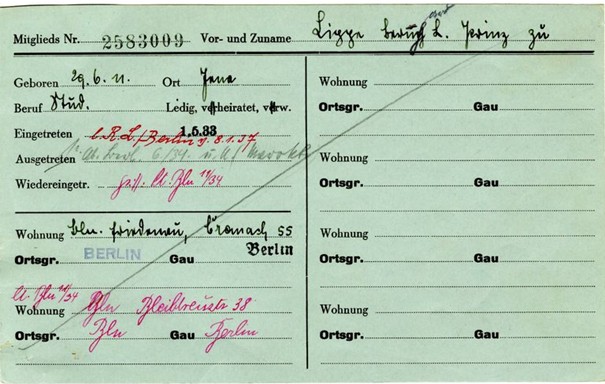 Mitglieds Nr. 2583009 Vor- und Zuname Lippe Bernhard L. Prinz zu
Geboren 29.6.11. Ort Jena
Beruf Stud. Ledig, verheiratet, verw.
Eingetreten 1.5.33 Berlin v. 8.1.37
Ausgetreten 6/34. u.
Wiedereingetr. lt. Bln 11/34
Wohnung Bln. Friedenau, Cranach 55
Ortsgr. BERLIN Gau Berlin
lt. Bln 11/34
Wohnung Bln Bleibtreustr 38
Ortsgr. Bln Gau Berlin
Wohnung
Ortsgr. Gau
Wohnung
Ortsgr. Gau
Wohnung
Ortsgr. Gau
Wohnung
Ortsgr. Gau